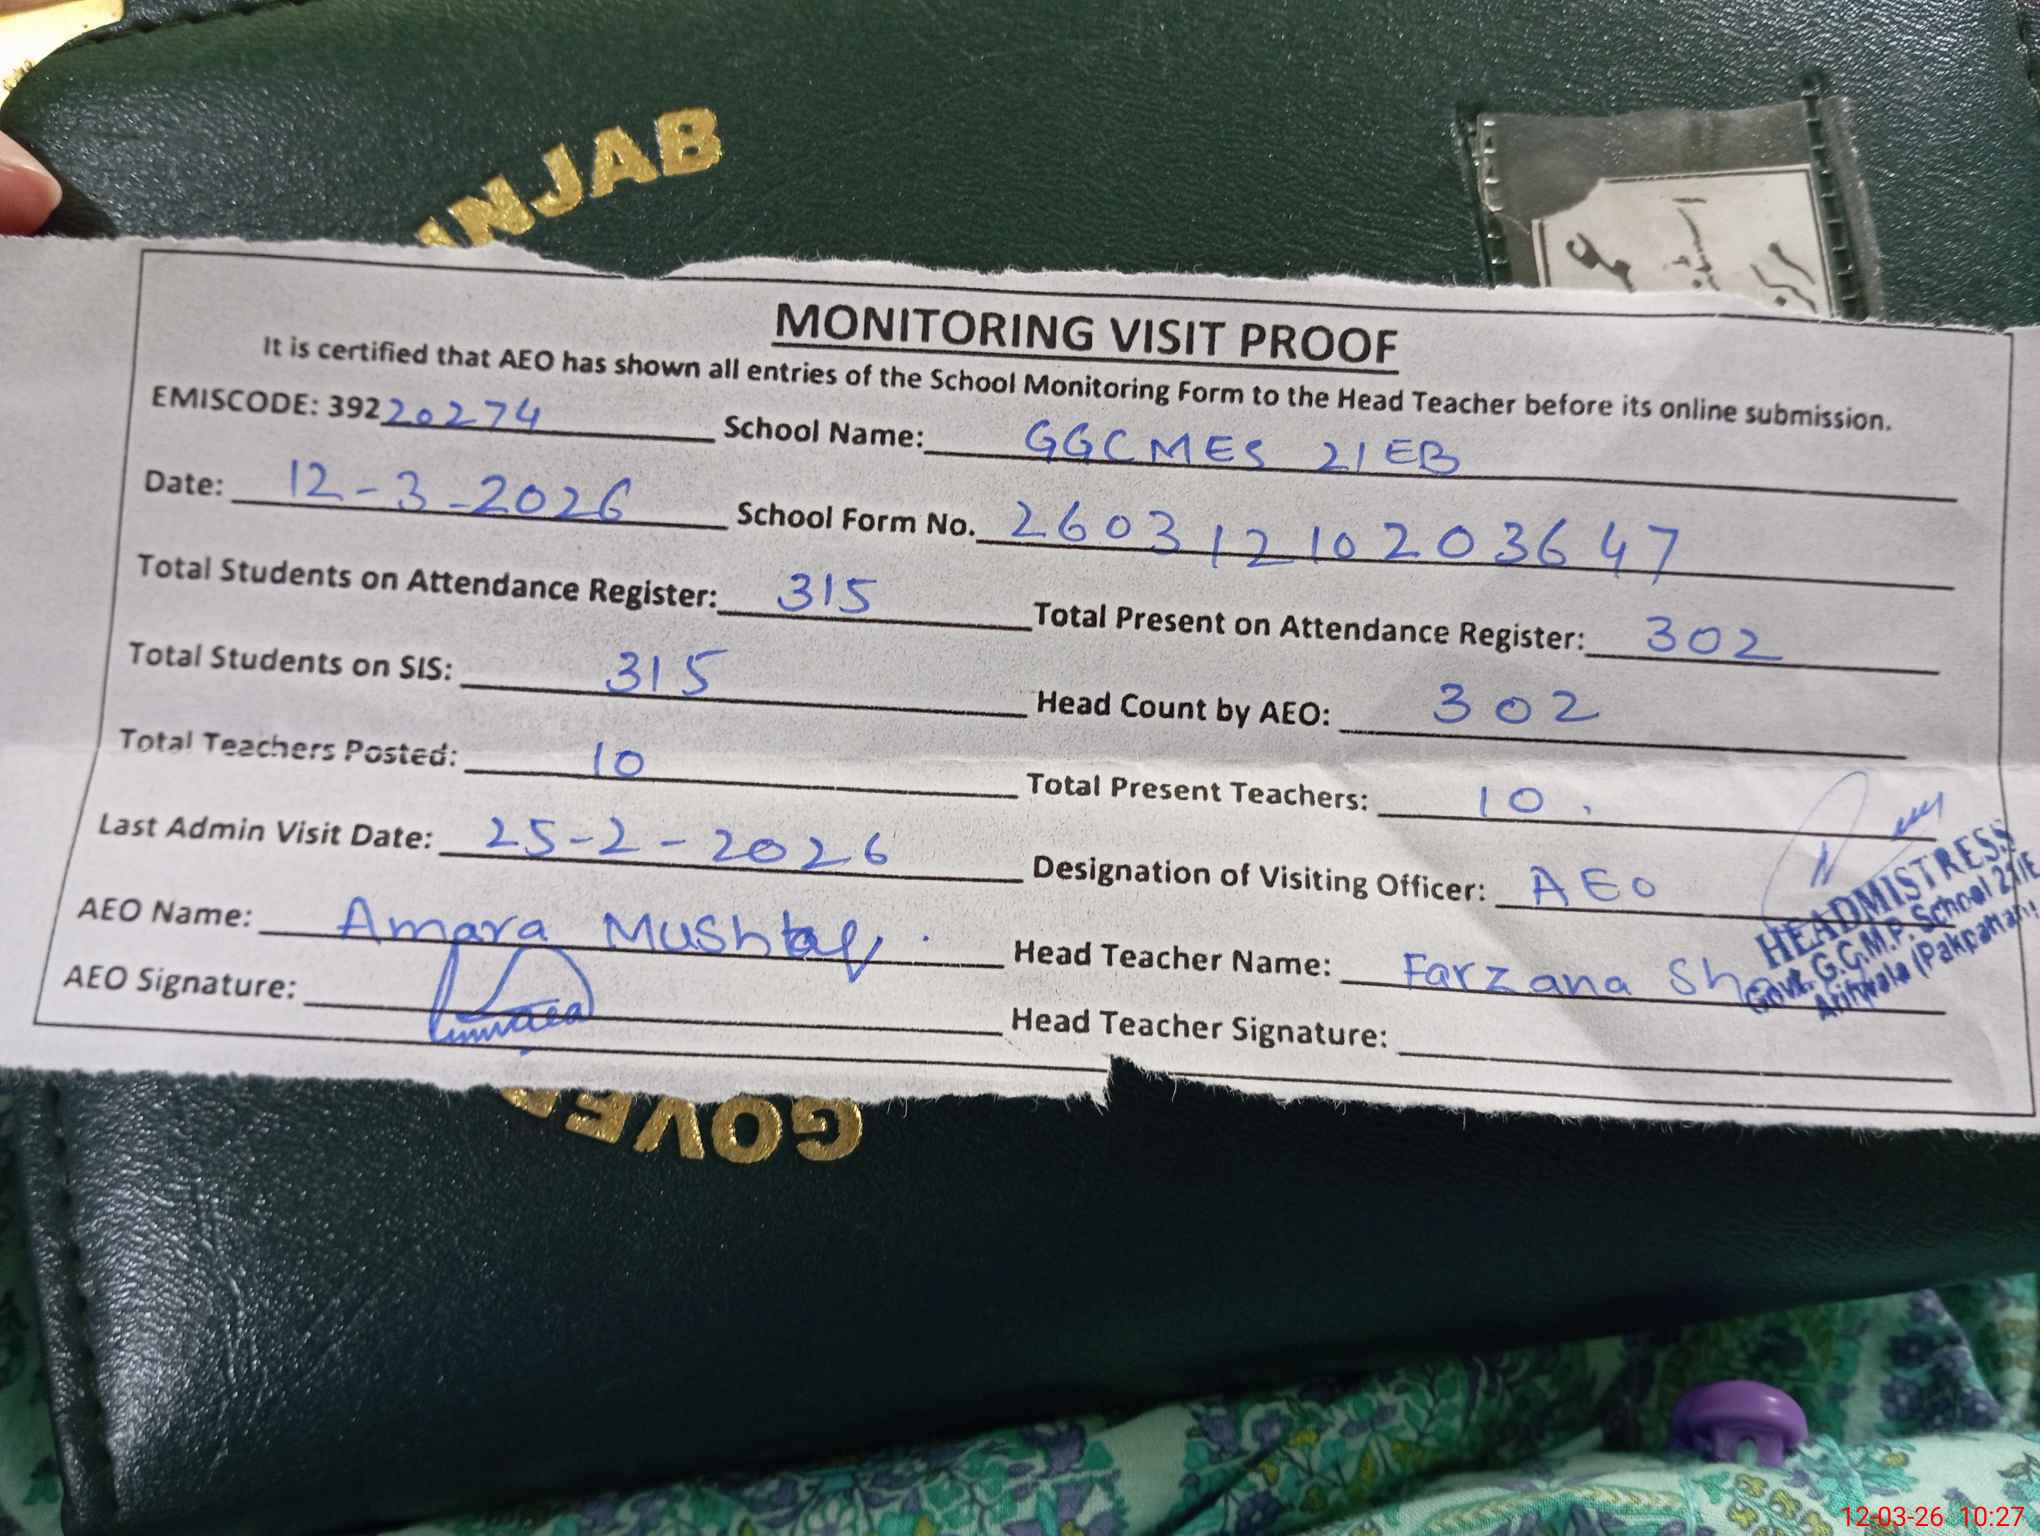 NJAB
MONITORING VISIT PROOF
It is certified that AEO has shown all entries of the School Monitoring Form to the Head Teacher before its online submission.
EMISCODE: 39220274 School Name: GGCMES 21EB
Date: 12-3-2026 School Form No. 26031210203647
Total Students on Attendance Register: 315 Total Present on Attendance Register: 302
Total Students on SIS: 315 Head Count by AEO: 302
Total Teachers Posted: 10 Total Present Teachers: 10.
Last Admin Visit Date: 25-2-2026 Designation of Visiting Officer: AEO
AEO Name: Amara Mushtaq. Head Teacher Name: Farzana
AEO Signature: Head Teacher Signature:
HEADMISTRESS
Govt. G.G.M.P. School 21/E
Arifwala (Pakpattan)
GOVE
12-03-26 10:27